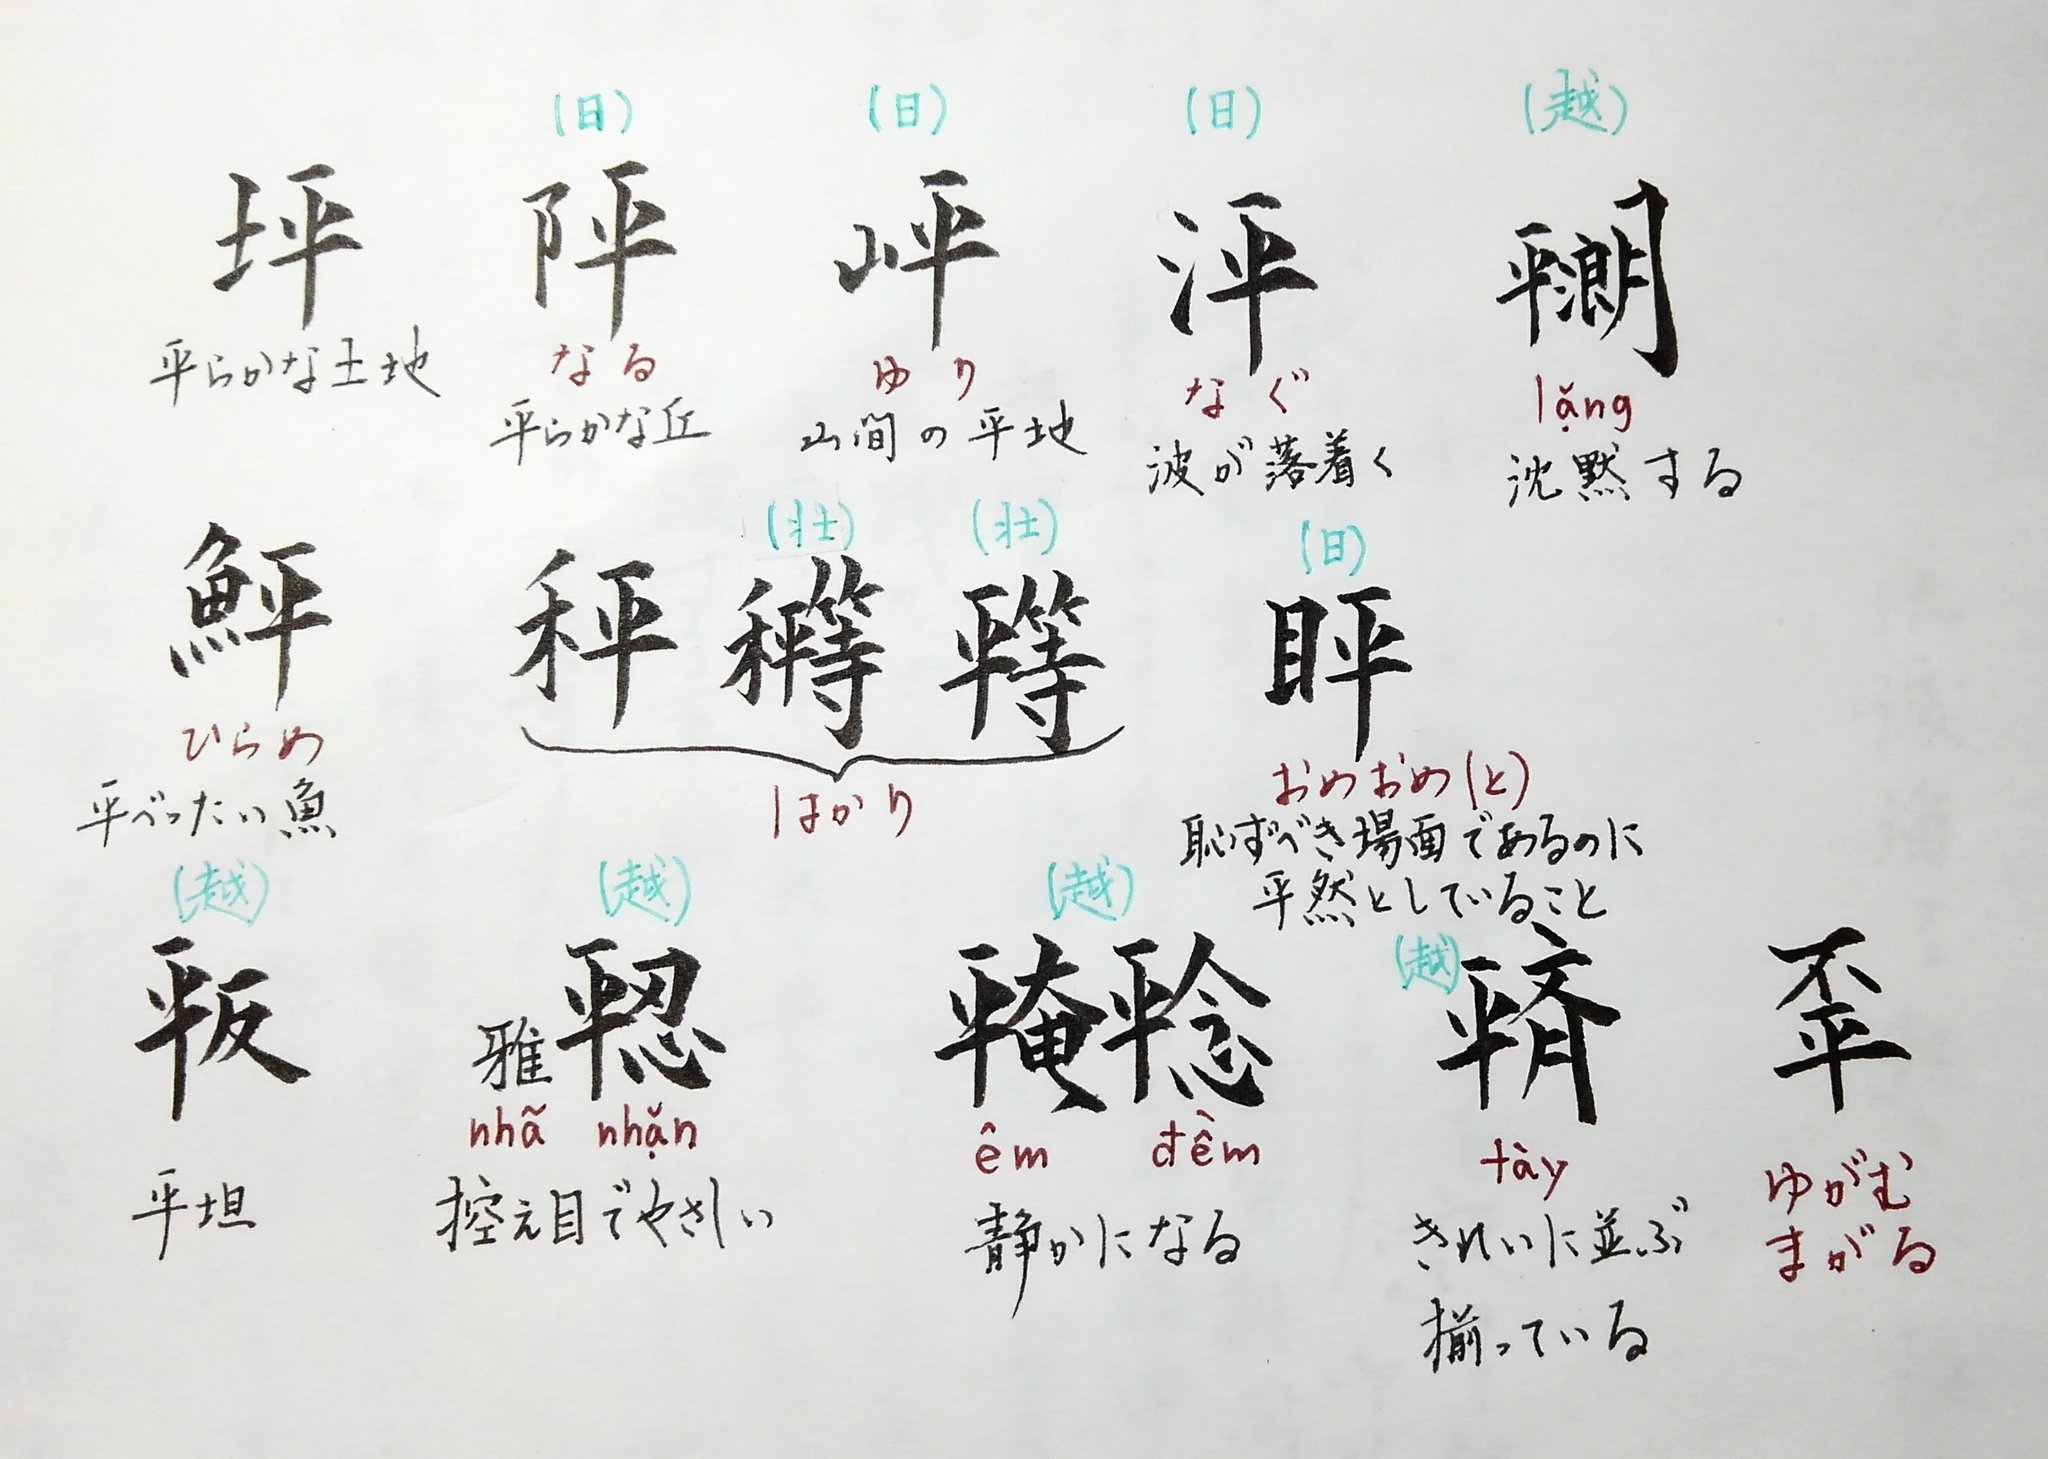 (日) (日) (日) (越)
坪 㺸 岼 泙
なる ゆり なぐ lặng
平らかな土地 平らかな丘 山間の平地 波が落着く 沈黙する
(壮) (壮) (日)
鮃 秤 眄
ひらめ はかり おめおめ(と)
平べったい魚 恥ずべき場面であるのに
平然としていること
(越) (越) (越) (越)
雅 歪
nhã nhặn êm đềm tày ゆがむ
まがる
平坦 控え目でやさしい 静かになる きれいに並ぶ
揃っている